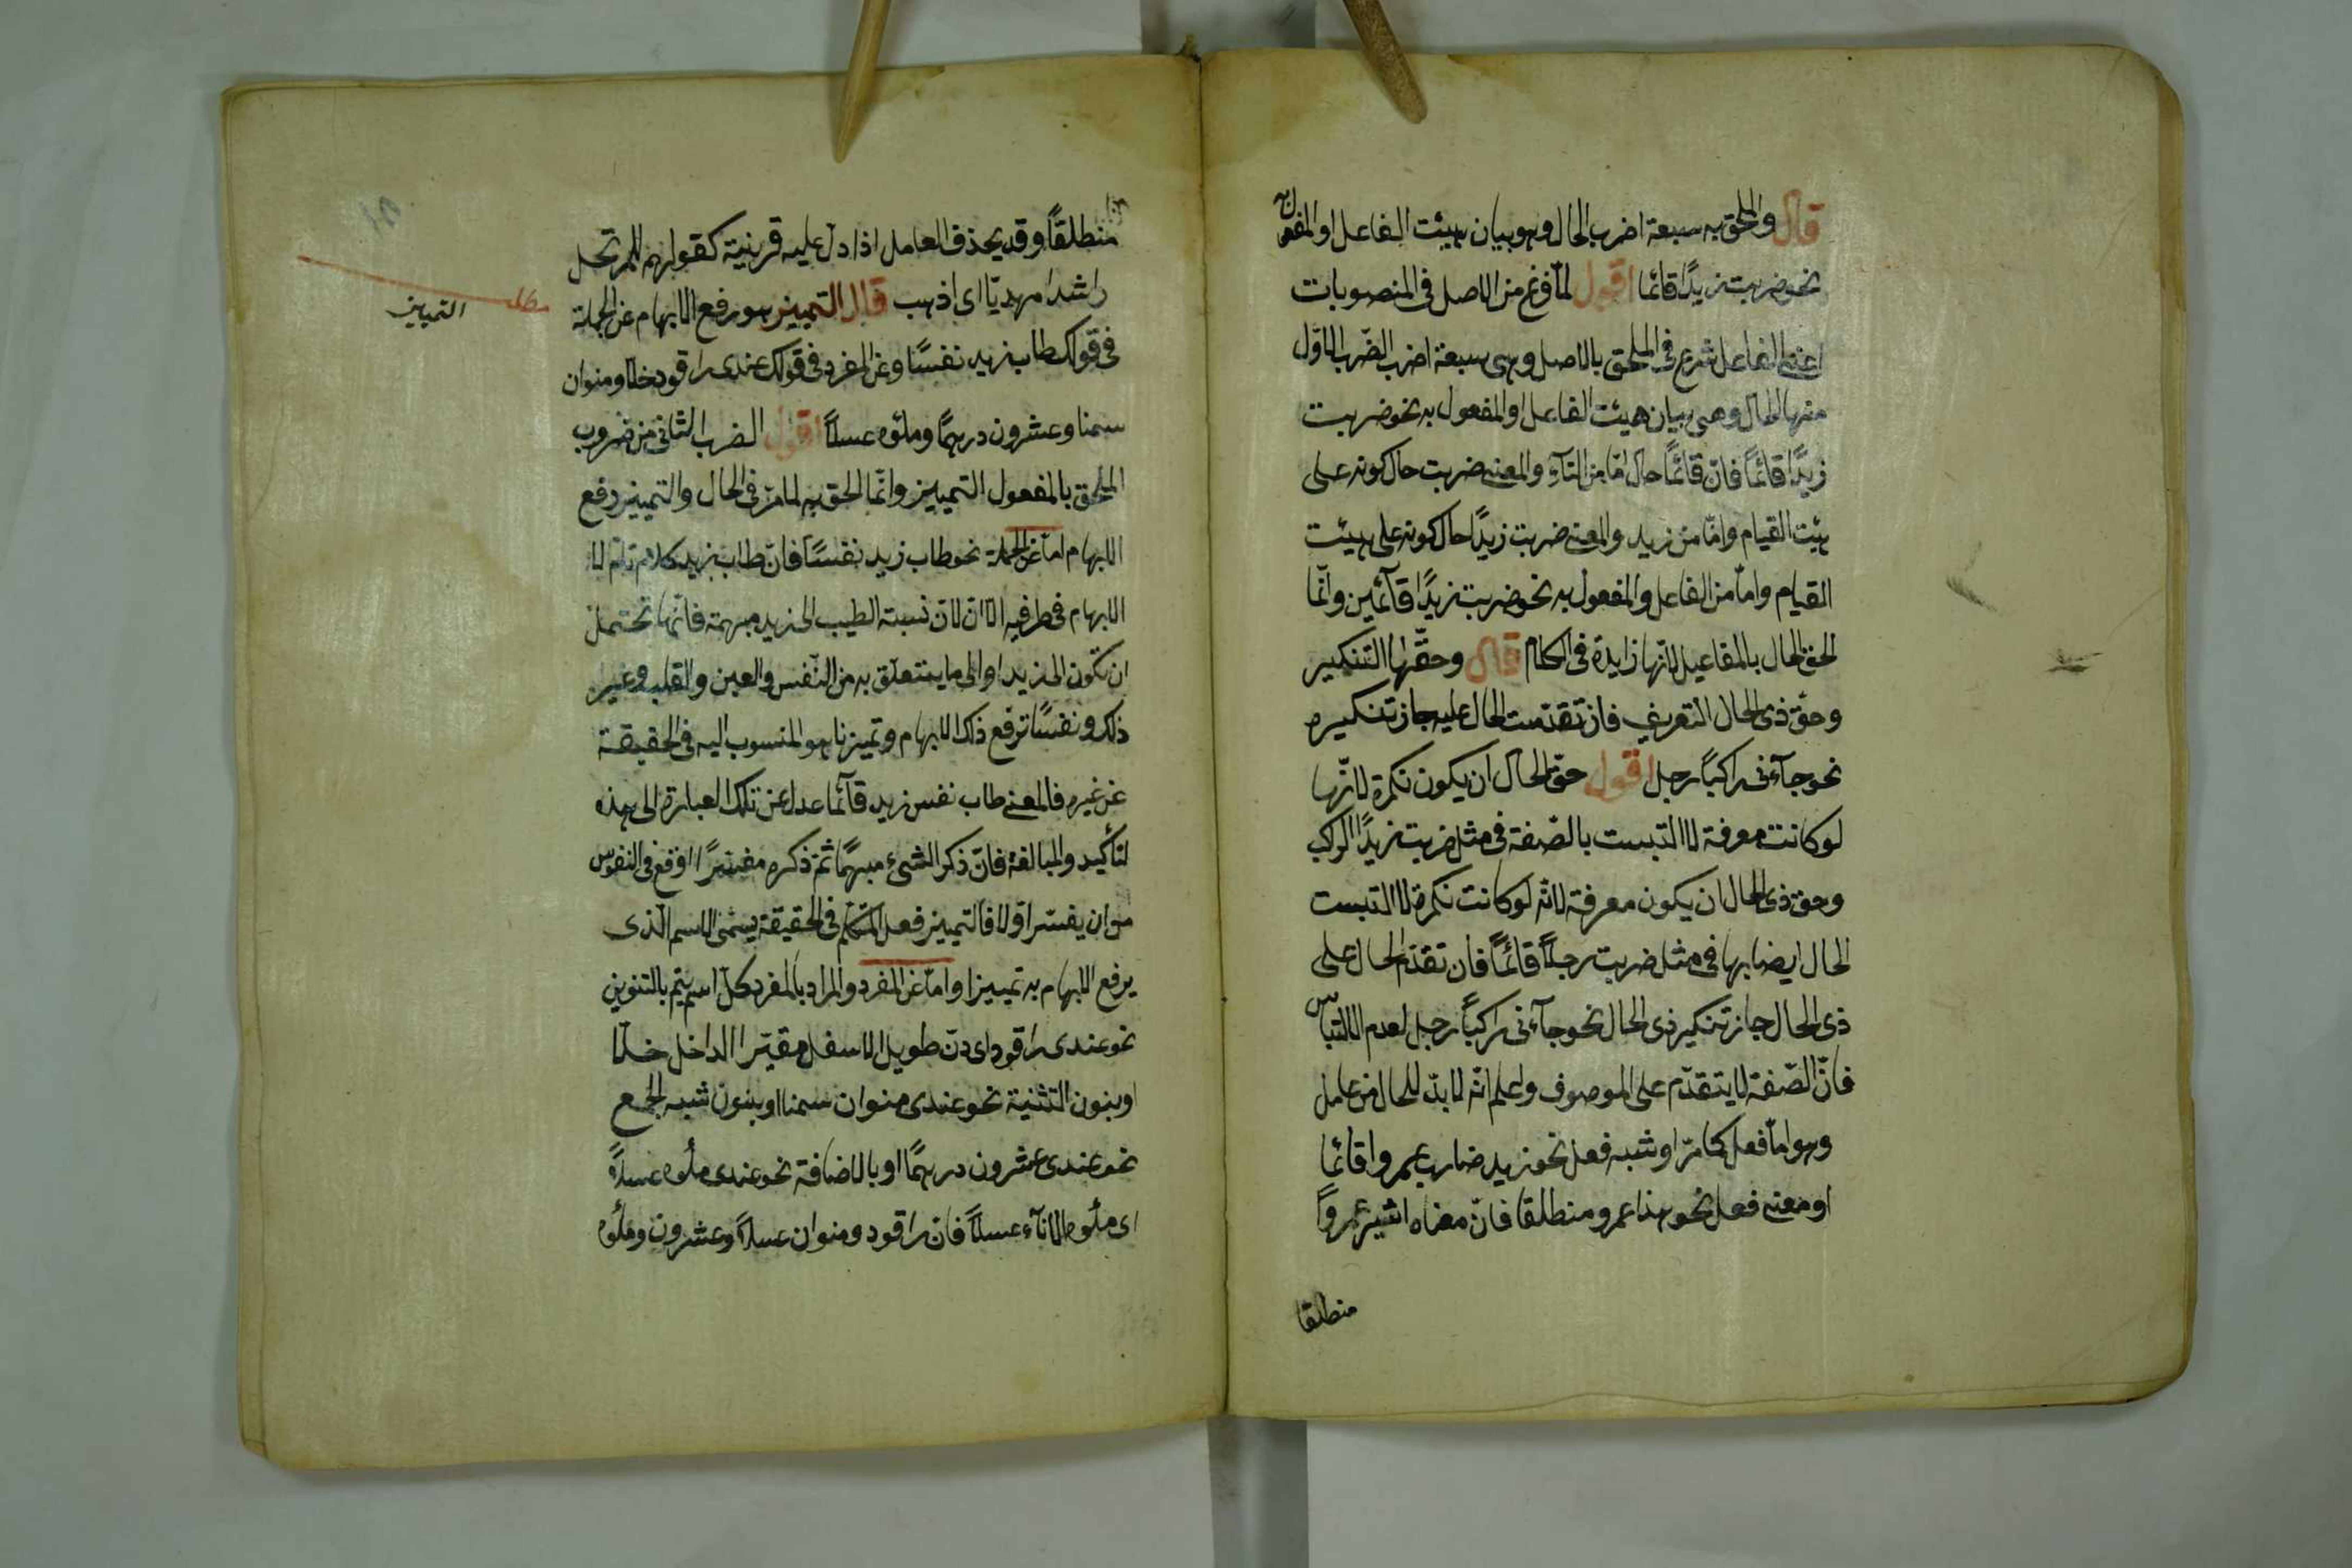 قال والملحق به سبعة اضرب الحال وهو بيان هيئت الفاعل او المفعول به
نحو ضربت زيدًا قائما اقول لمّا فرغ من الاصل فى المنصوبات
اعنى المفاعل شرع فى الملحق بالاصل وهى سبعة اضرب الضّرب الاوّل
منها الحال وهى بيان هيئت الفاعل او المفعول به نحو ضربت
زيدًا قائمًا فانّ قائمًا حال امّا من التآء والمعنى ضربت حال كونه على
هيئت القيام وامّا من زيد والمعنى ضربت زيدًا حال كونه على هيئت
القيام وامّا من الفاعل والمفعول به نحو ضربت زيدًا قآئمين وانّما
الحق الحال بالمفاعيل لانّها زايدة فى الكلام قال وحقّها التنكير
وحقّ ذى الحال التعريف فان تقدّمت الحال عليه جاز تنكيره
نحو جآءنى راكبًا رجل اقول حقّ الحال ان يكون نكرة لانّها
لو كانت معرفة لالتبست بالصّفة فى مثل ضربت زيدًا الراكب
وحق ذى الحال ان يكون معرفة لانّه لو كانت نكرة لالتبست
الحال ايضا بها فى مثل ضربت رجلًا قائمًا فان تقدّم الحال على
ذى الحال جاز تنكير ذى الحال نحو جآءنى راكبًا رجل لعدم الالتباس
فانّ الصّفة لا يتقدّم على الموصوف واعلم انّه لا بدّ للحال من عامل
وهو امّا فعل كما مرّ او شبه فعل نحو زيد ضارب عمروا قائمًا
او معنى فعل نحو هذا عمرو منطلقا فانّ معناه اشير عمروًا
منطلقا
منطلقًا وقد يحذف العامل اذا دلّ عليه قرينة كقولهم للمرتحل
راشدا مهديّا اى اذهب قال التمييز هو رفع الابهام عن الجملة
مط
التمييز
فى قولك طاب زيد نفسًا وعن المفرد فى قولك عندى راقود خلّا ومنوان
سمنا وعشرون درهمًا وملؤه عسلًا اقول الضرب الثانى من ضروب
الملحق بالمفعول التمييز وانّما الحق به لما مرّ فى الحال والتمييز رفع
الابهام امّا عن الجملة نحو طاب زيد نفسًا فانّ طاب زيد كلام تامّ لا
الابهام فى طرفيه الّا انّ لان نسبة الطيب الى زيد مبهمة فانّها تحتمل
ان تكون الى زيد او الى ما يتعلّق به من النّفس والعين والقلب وغير
ذلك ونفسًا ترفع ذلك الابهام وتميز ما هو المنسوب اليه فى الحقيقة
عن غيره فالمعنى طاب نفس زيد قآئما عدل عن تلك العبارة الى هذه
لتأكيد والمبالغة فانّ ذكر الشىء مبهمًا ثمّ ذكره مفسّرًا اوقع فى النفوس
من ان يفسّر اوّلا فالتمييز فعل المتكلّم فى الحقيقة يسمّى الاسم الّذى
يرفع الابهام به تمييزا وامّا عن المفرد والمراد بالمفرد كلّ اسم يتمّ بالتنوين
نحو عندى راقود اى دنّ طويل الاسفل مقيّر الداخل خلّا
او بنون التثنية نحو عندى منوان سمنا او بنون شبه الجمع
نحو عندى عشرون درهمًا او بالاضافة نحو عندى ملؤه عسلًا
اى ملؤه الانآء عسلًا فان راقود ومنوان عسلًا وعشرون وملؤه